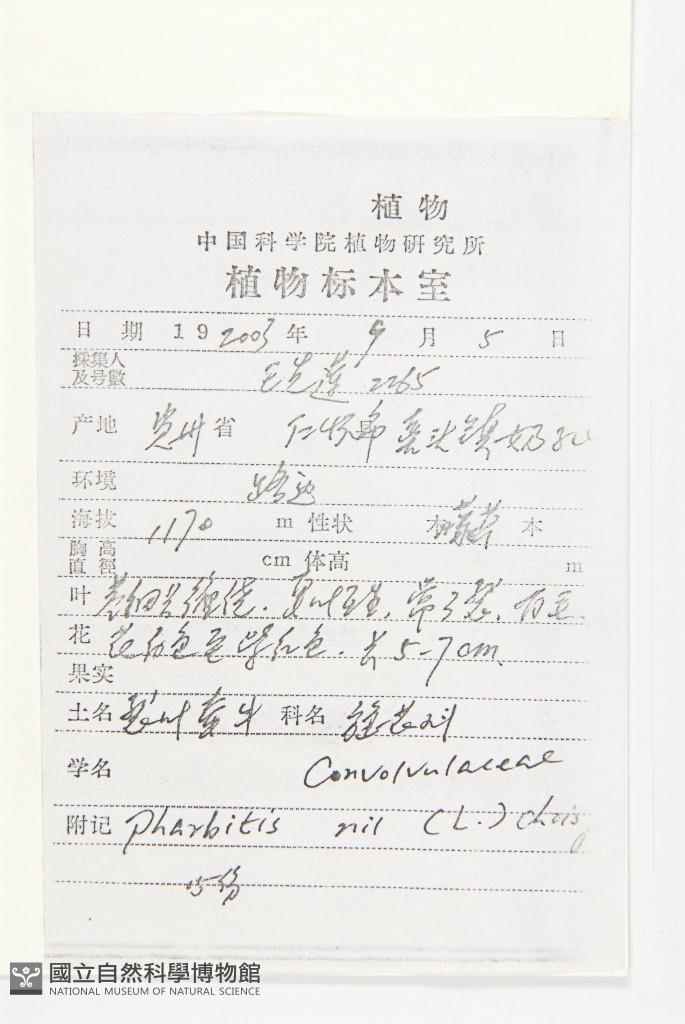 植物
中国科学院植物研究所
植物标本室
日 期 19 2003 年 9 月 5 日
採集人
及号數 王先莲 2265
产地 贵州省 仁怀市 镇
环境 路边
海拔 1170 m 性状 草 本
胸高
直徑 cm 体高 m
叶 互生. 常3裂. 有毛.
花 花 色至紫红色. 长5-7cm.
果实
土名 裂叶牵牛 科名 旋花科
学名 Convolvulaceae
附记 Pharbitis nil (L.) Choisy
15份
國立自然科學博物館
NATIONAL MUSEUM OF NATURAL SCIENCE